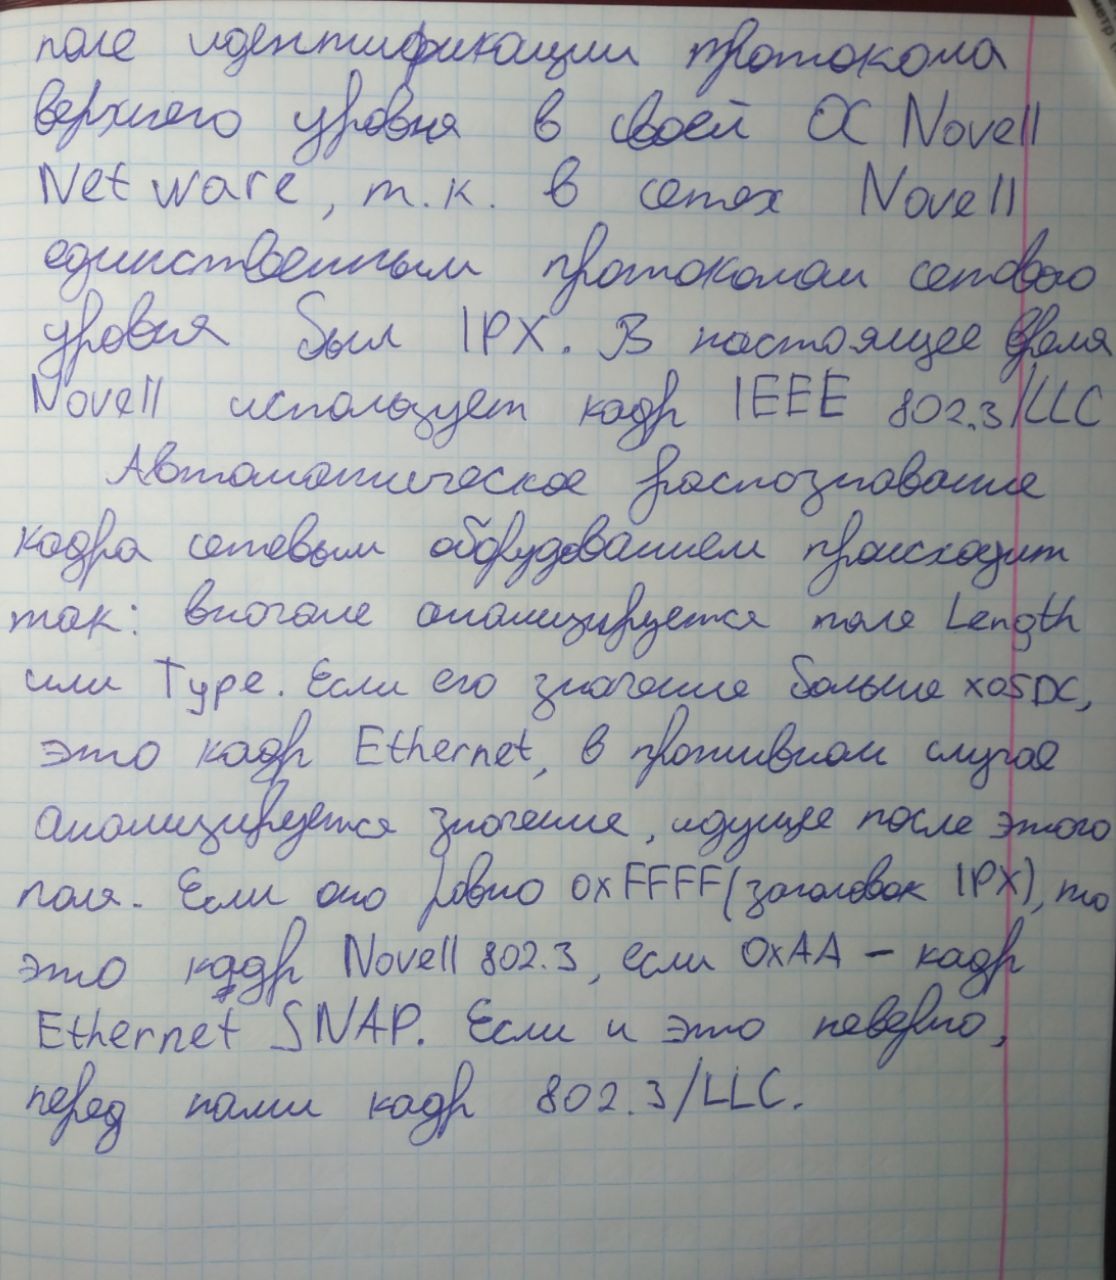 поле идентификации протокола
верхнего уровня в своей ОС Novell
Netware, т.к. в сетях Novell
единственным протоколом сетевого
уровня был IPX. В настоящее время
Novell использует кадр IEEE 802.3/LLC
Автоматическое распознавание
кадра сетевым оборудованием происходит
так: вначале анализируется поле Length
или Type. Если его значение больше x05DC,
это кадр Ethernet, в противном случае
анализируется значение, идущее после этого
поля. Если оно равно 0xFFFF (заголовок IPX), то
это кадр Novell 802.3, если 0xAA – кадр
Ethernet SNAP. Если и это неверно,
перед нами кадр 802.3/LLC.